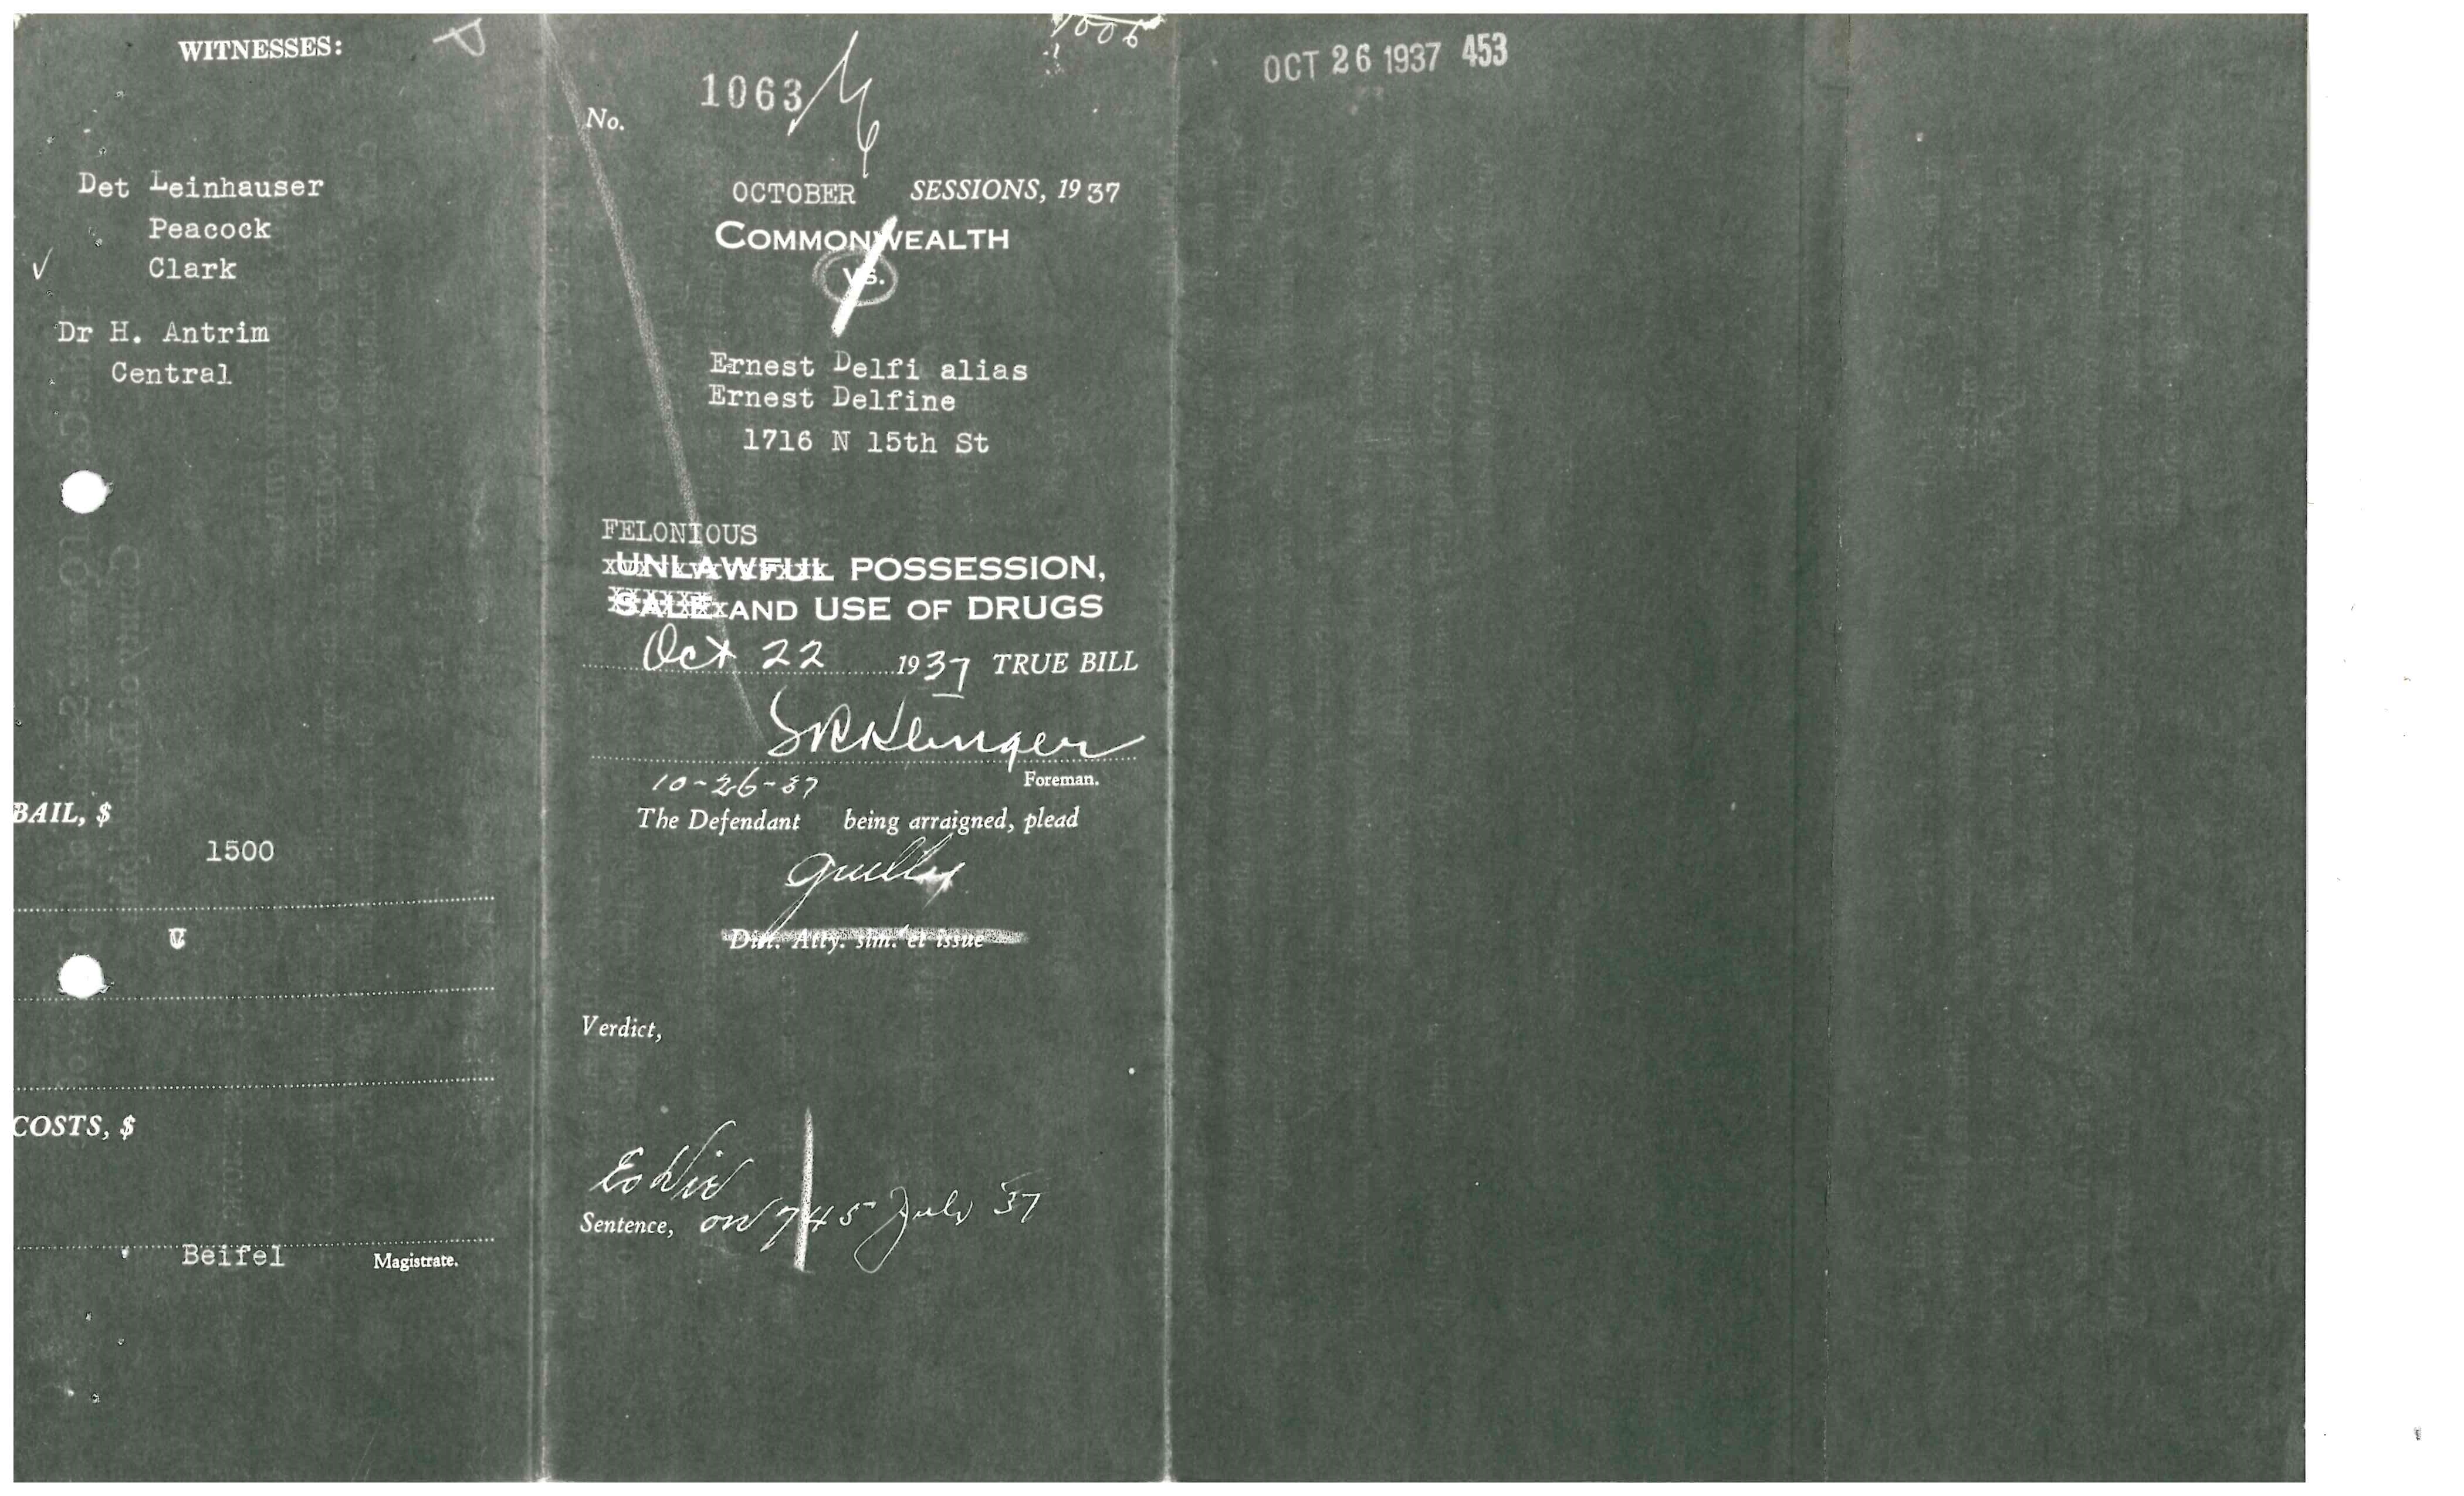 WITNESSES:
Det Leinhauser
Peacock
✓ Clark
Dr H. Antrim
Central
BAIL, $
1500
COSTS, $
Beifel Magistrate.
No. 1063
OCTOBER SESSIONS, 1937
COMMONWEALTH
VS.
Ernest Delfi alias
Ernest Delfine
1716 N 15th St
FELONIOUS
UNLAWFUL POSSESSION,
SALE AND USE OF DRUGS
Oct 22 1937 TRUE BILL
Foreman.
10-26-37
The Defendant being arraigned, plead
guilty
Dist. Atty. sim. et issue
Verdict,
Sentence, on 745 July 37
OCT 26 1937 453